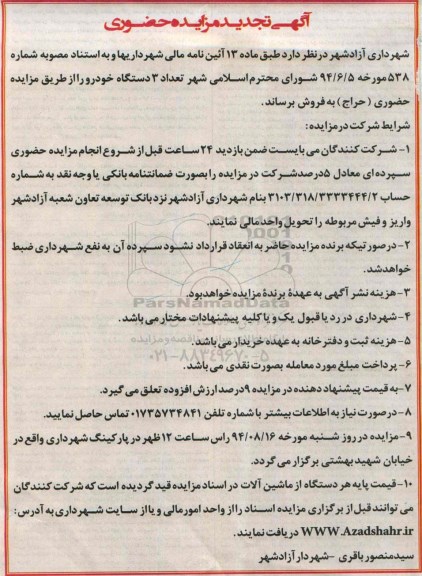 آگهی تجدید مزایده حضوری
شهرداری آزادشهر درنظر دارد طبق ماده ۱۳ آئین نامه مالی شهرداریها و به استناد مصوبه شماره
۵۳۸ مورخه ۹۴/۶/۵ شورای محترم اسلامی شهر تعداد ۳ دستگاه خودرو را از طریق مزایده
حضوری (حراج) به فروش برساند.
شرایط شرکت در مزایده:
۱- شرکت کنندگان می بایست ضمن بازدید ۲۴ ساعت قبل از شروع انجام مزایده حضوری
سپرده‌ای معادل ۵ درصد شرکت در مزایده را بصورت ضمانتنامه بانکی یا وجه نقد به شماره
حساب ۳۱۰۳/۳۱۸/۳۳۳۳۴۴۴/۲ بنام شهرداری آزادشهر نزد بانک توسعه تعاون شعبه آزادشهر
واریز و فیش مربوطه را تحویل واحد مالی نمایند.
۲- درصورتیکه برنده مزایده حاضر به انعقاد قرارداد نشود سپرده آن به نفع شهرداری ضبط
خواهد شد.
۳- هزینه نشر آگهی به عهدهٔ برندهٔ مزایده خواهد بود.
ParsNamadData
۴- شهرداری در رد یا قبول یک و یا کلیه پیشنهادات مختار می باشد.
۵- هزینه ثبت و دفترخانه به عهده خریدار می باشد.
۰۲۱-۸۸۳۴۹۶۷۰-۵
۶- پرداخت مبلغ مورد معامله بصورت نقدی می باشد.
۷- به قیمت پیشنهاد دهنده در مزایده ۹ درصد ارزش افزوده تعلق می گیرد.
۸- درصورت نیاز به اطلاعات بیشتر با شماره تلفن ۰۱۷۳۵۷۳۴۸۴۱ تماس حاصل نمایید.
۹- مزایده در روز شنبه مورخه ۹۴/۰۸/۱۶ راس ساعت ۱۲ ظهر در پارکینگ شهرداری واقع در
خیابان شهید بهشتی برگزار می گردد.
۱۰- قیمت پایه هر دستگاه از ماشین آلات در اسناد مزایده قید گردیده است که شرکت کنندگان
می توانند قبل از برگزاری مزایده اسناد را از واحد امور مالی و یا از سایت شهرداری به آدرس:
WWW.Azadshahr.ir دریافت نمایند.
سید منصور باقری - شهردار آزادشهر